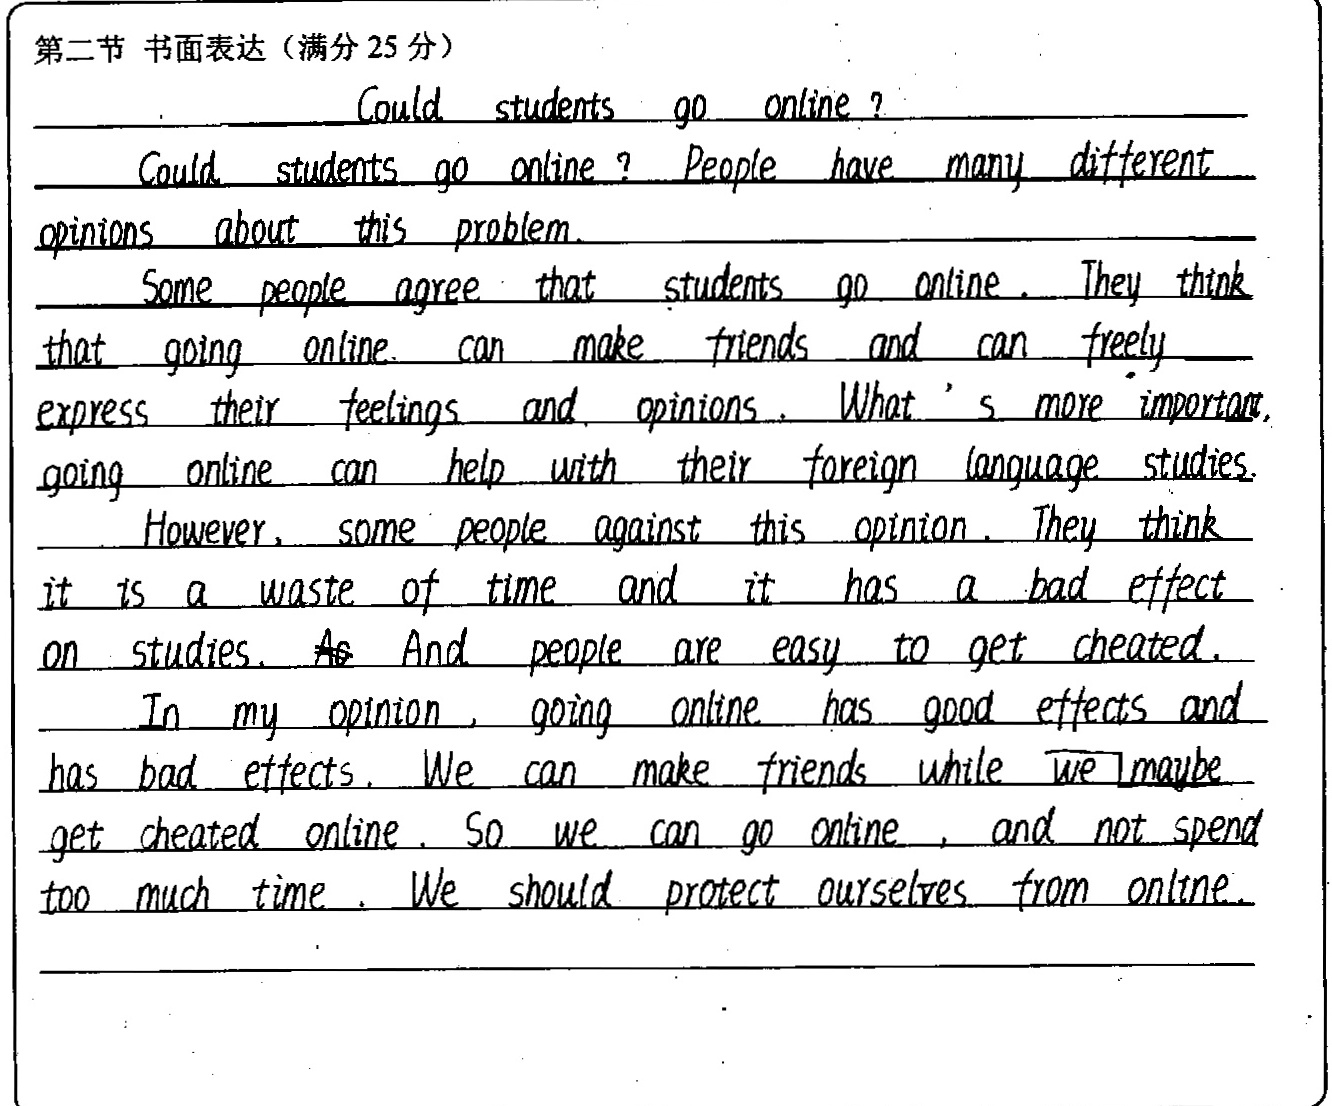 第二节 书面表达（满分 25 分）
Could students go online ?
Could students go online ? People have many different
opinions about this problem.
Some people agree that students go online . They think
that going online can make friends and can freely
express their feelings and opinions . What 's more important,
going online can help with their foreign language studies.
However, some people against this opinion . They think
it is a waste of time and it has a bad effect
on studies. And people are easy to get cheated.
In my opinion , going online has good effects and
has bad effects. We can make friends while we maybe
get cheated online . So we can go online , and not spend
too much time . We should protect ourselves from online.